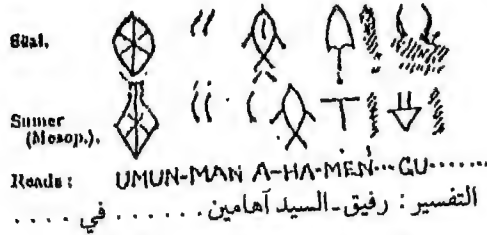 Sūal.
Sumer
(Mesop.).
Reads: UMUN-MAN A-HA-MEN...GU.......
التفسير : رفيق-السيد آهامين . . . . . . . في . . . . .